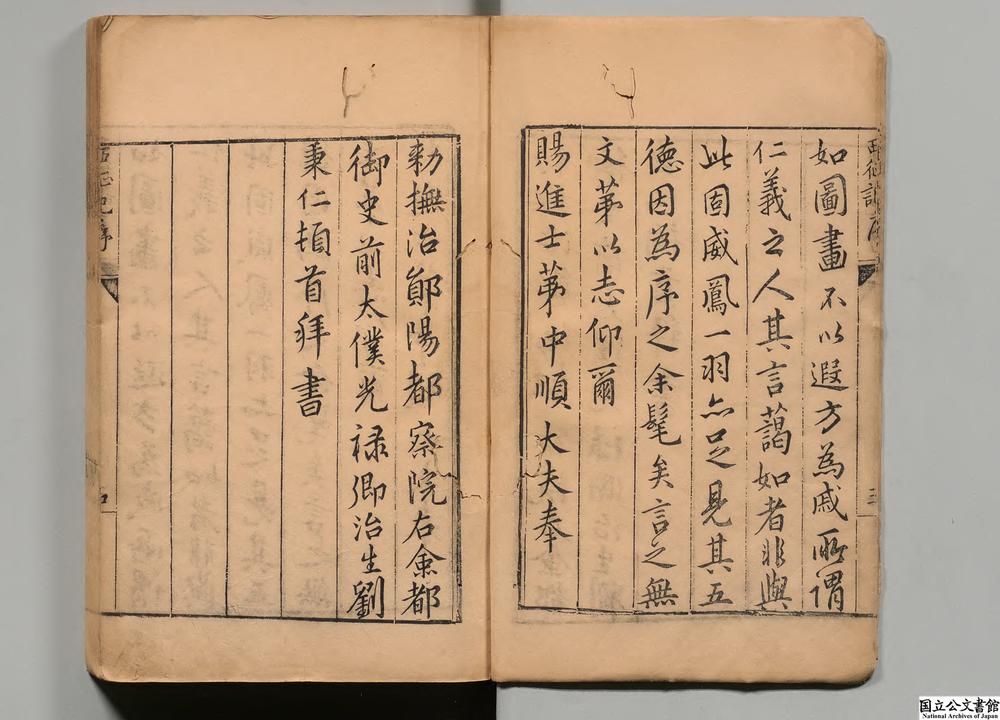 如圖畫不以遐方為戚所謂
仁義之人其言藹如者非與
此固威鳳一羽亦足見其五
德因為序之余髦矣言之無
文苐以志仰爾
賜進士苐中順大夫奉
勑撫治鄖陽都察院右僉都
御史前太僕光禄卿治生劉
秉仁頓首拜書
國立公文書館
National Archives of Japan